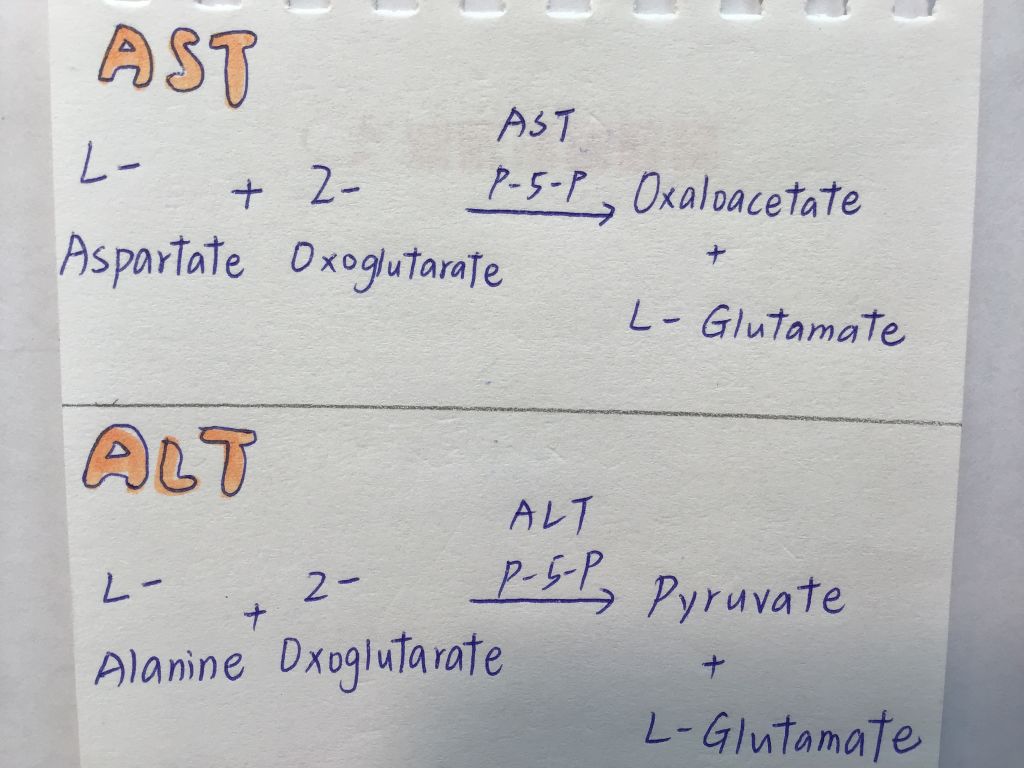 AST
AST
L- + 2- P-5-P Oxaloacetate
Aspartate Oxoglutarate +
L- Glutamate
ALT
ALT
L- + 2- P-5-P Pyruvate
Alanine Oxoglutarate +
L-Glutamate